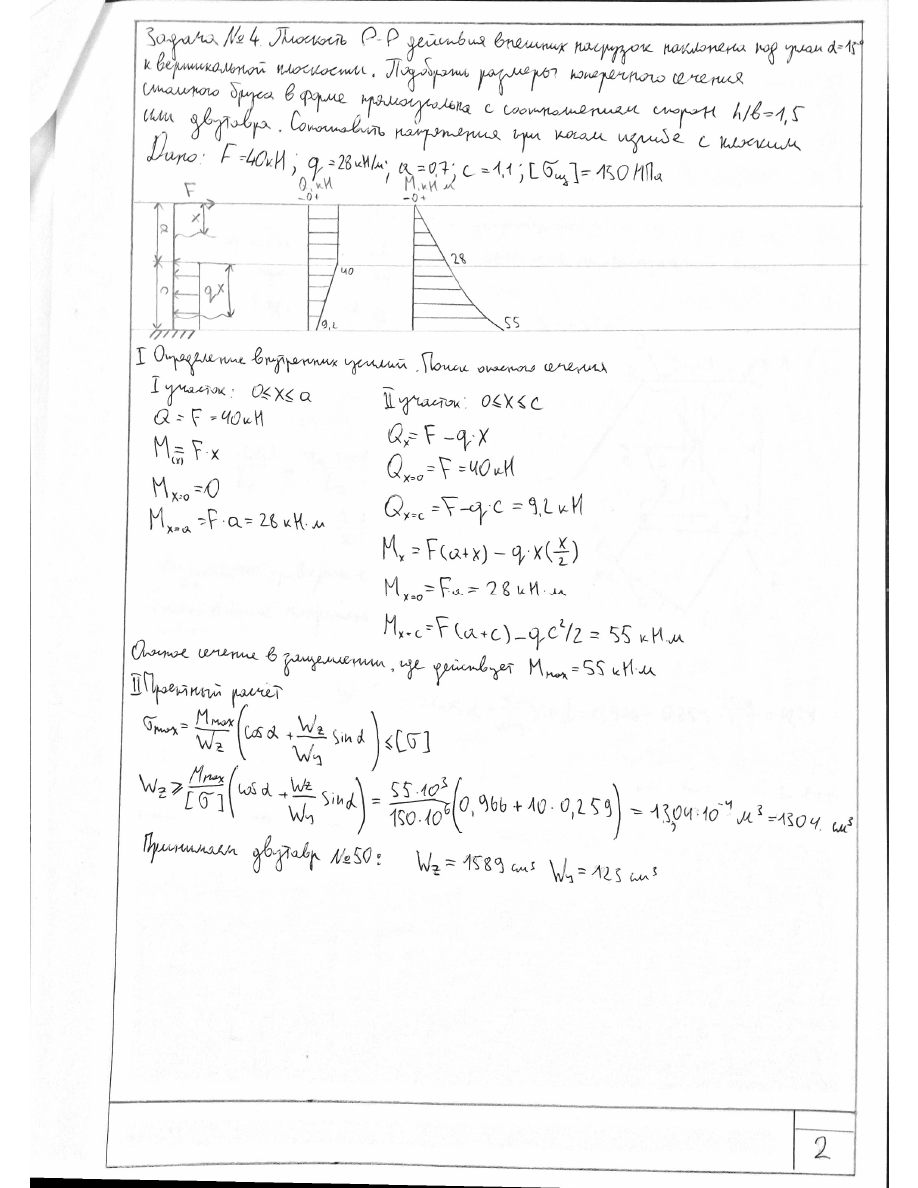 Задача №4. Плоскость P-P действия внешних нагрузок наклонена под углом α=15°
к вертикальной плоскости. Подобрать размеры поперечного сечения
стального бруса в форме прямоугольна с соотношением сторон h/b=1,5
или двутавра. Сопоставить напряжения при косом изгибе с плоским
Дано: F=40кН; q=28кН/м; a=0,7; c=1,1; [σиз]=150МПа
F Q, кН М, кН м
-0+ -0+
x
a
40 28
c qx
9,2 55
I Определение внутренних усилий. Поиск опасного сечения
I участок: 0≤x≤a
Q = F = 40кН
M(x) = F·x
Mx=0 = 0
Mx=a = F·a = 28 кН·м
II участок: 0≤x≤c
Qx = F – q·x
Qx=0 = F = 40кН
Qx=c = F – q·c = 9,2 кН
Mx = F(a+x) – q·x(x/2)
Mx=0 = Fa = 28 кН·м
Mx=c = F(a+c) – qc²/2 = 55 кН м
Опасное сечение в защемлении, где действует Mmax = 55 кН·м
II Проектный расчёт
σmax = Mmax/Wz (cosα + Wz/Wy sinα) ≤ [σ]
Wz ≥ Mmax/[σ] (cosα + Wz/Wy sinα) = 55·10³/150·10⁶ (0,966 + 10·0,259) = 13,04·10⁻⁴ м³ = 1304 см³
Принимаем двутавр №50: Wz = 1589 см³ Wy = 123 см³
2